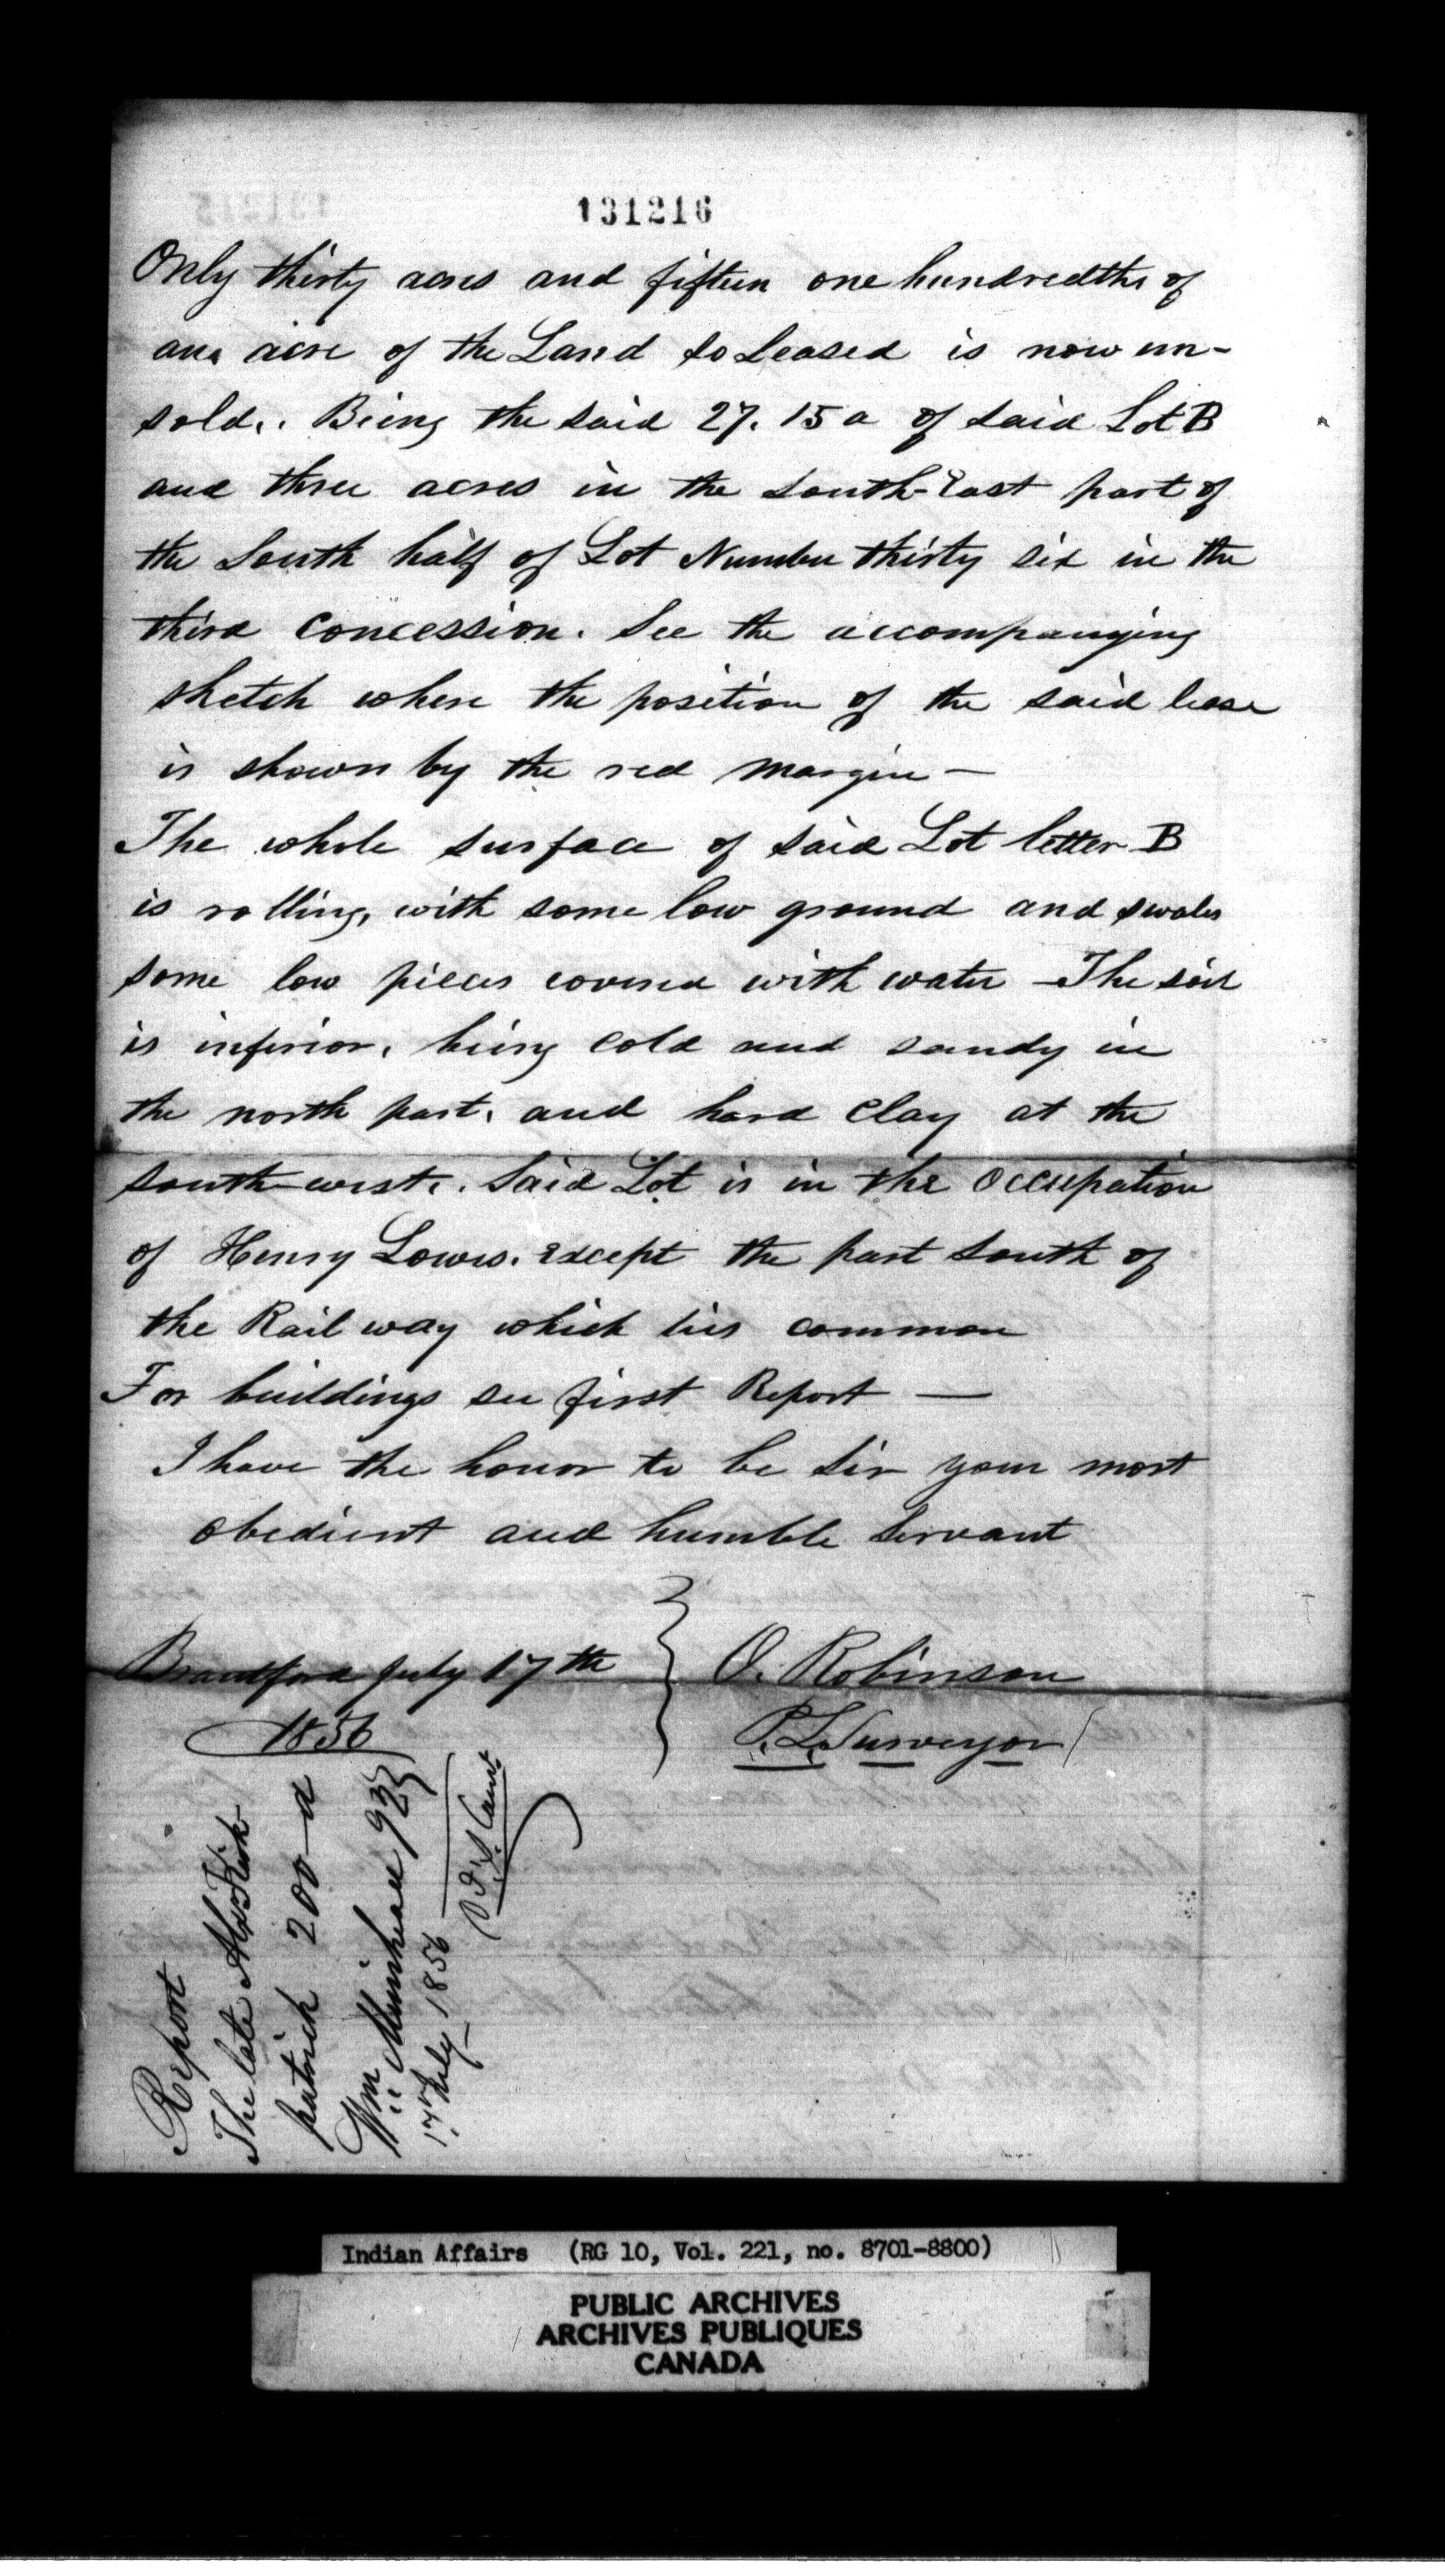 131216
Only thirty acres and fifteen one hundredths of
an acre of the Land so Leased is now un-
sold. Being the said 27.15 a of said Lot B
and three acres in the South-East part of
the South half of Lot Number thirty six in the
third concession. See the accompanying
sketch where the position of the said lease
is shown by the red margin —
The whole surface of said Lot letter B
is rolling, with some low ground and swales
some low pieces covered with water — The soil
is inferior, being cold and sandy in
the north part, and hard clay at the
south-west. Said Lot is in the occupation
of Henry Lowes. except the part south of
the Rail way which lies common
For buildings see first Report —
I have the honor to be Sir your most
obedient and humble Servant
Brantford July 17th
1856
O. Robinson
P. L. Surveyor
Report
The late Alex Kirk
patrick 200 a
Wm Muirhead 93
17 July 1856
Indian Affairs (RG 10, Vol. 221, no. 8701-8800)
PUBLIC ARCHIVES
ARCHIVES PUBLIQUES
CANADA